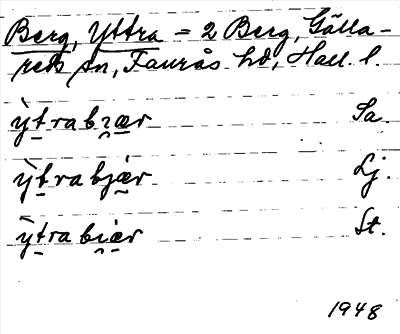 Berg, Yttra = 2 Berg, Gälla-
reds sn, Faurås hd, Hall. l.
ỳt̠rabɪ̯æ̠r Sa.
ỳt̠rabjæ̠r Lj.
ỳt̠rabi̯æ̠r St.
1948